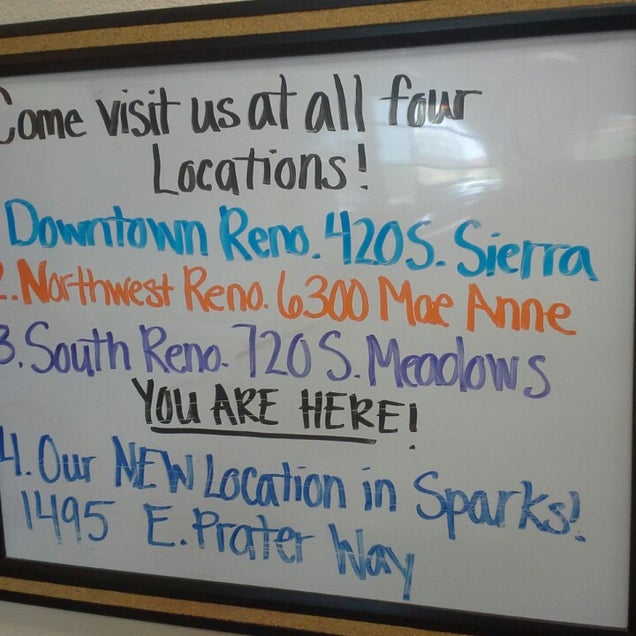 Come visit us at all four
Locations!
Downtown Reno. 420 S. Sierra
2. Northwest Reno. 6300 Mae Anne
3. South Reno. 720 S. Meadows
YOU ARE HERE!
4. Our NEW Location in Sparks!
1495 E. Prater Way